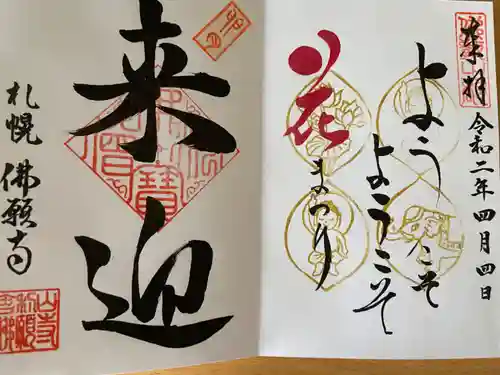 奉拝
令和二年四月四日
ようこそ
ようこそ
花まつり
来迎
佛法僧寶
札幌 佛願寺